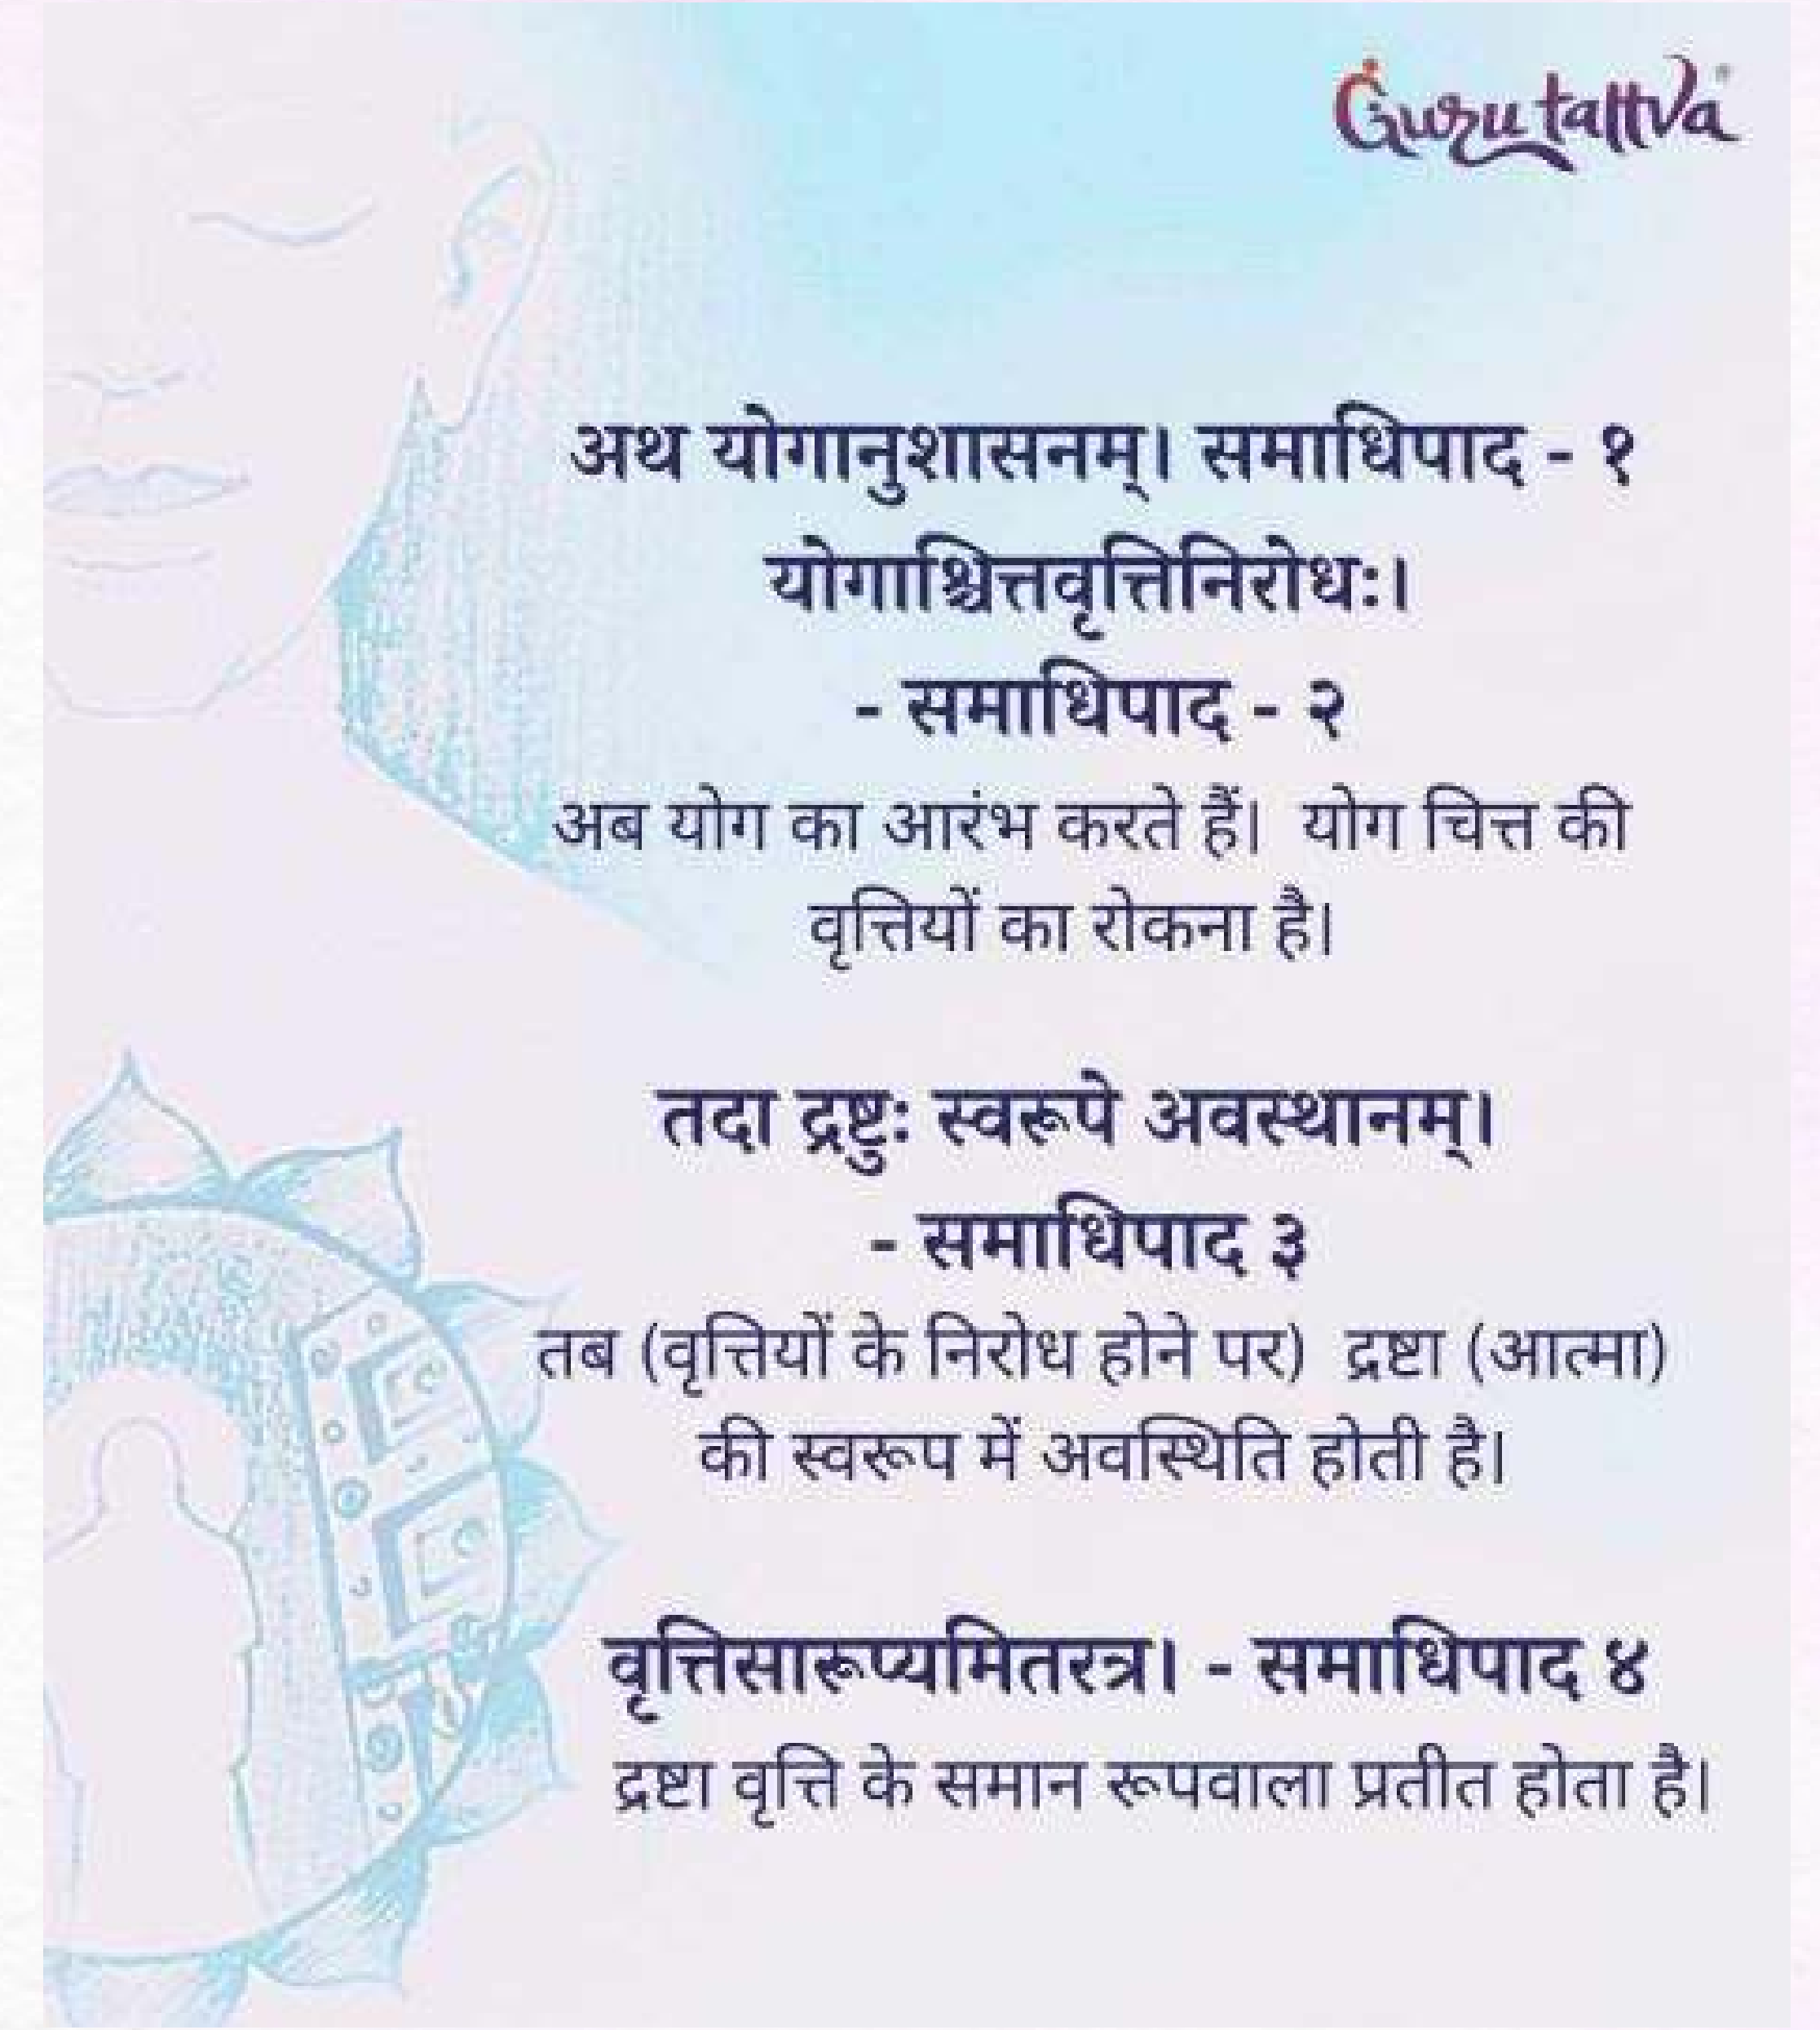 Guru tattva®
अथ योगानुशासनम्। समाधिपाद - १
योगाश्चित्तवृत्तिनिरोधः।
- समाधिपाद - २
अब योग का आरंभ करते हैं। योग चित्त की
वृत्तियों का रोकना है।
तदा द्रष्टुः स्वरूपे अवस्थानम्।
- समाधिपाद ३
तब (वृत्तियों के निरोध होने पर) द्रष्टा (आत्मा)
की स्वरूप में अवस्थिति होती है।
वृत्तिसारूप्यमितरत्र। - समाधिपाद ४
द्रष्टा वृत्ति के समान रूपवाला प्रतीत होता है।